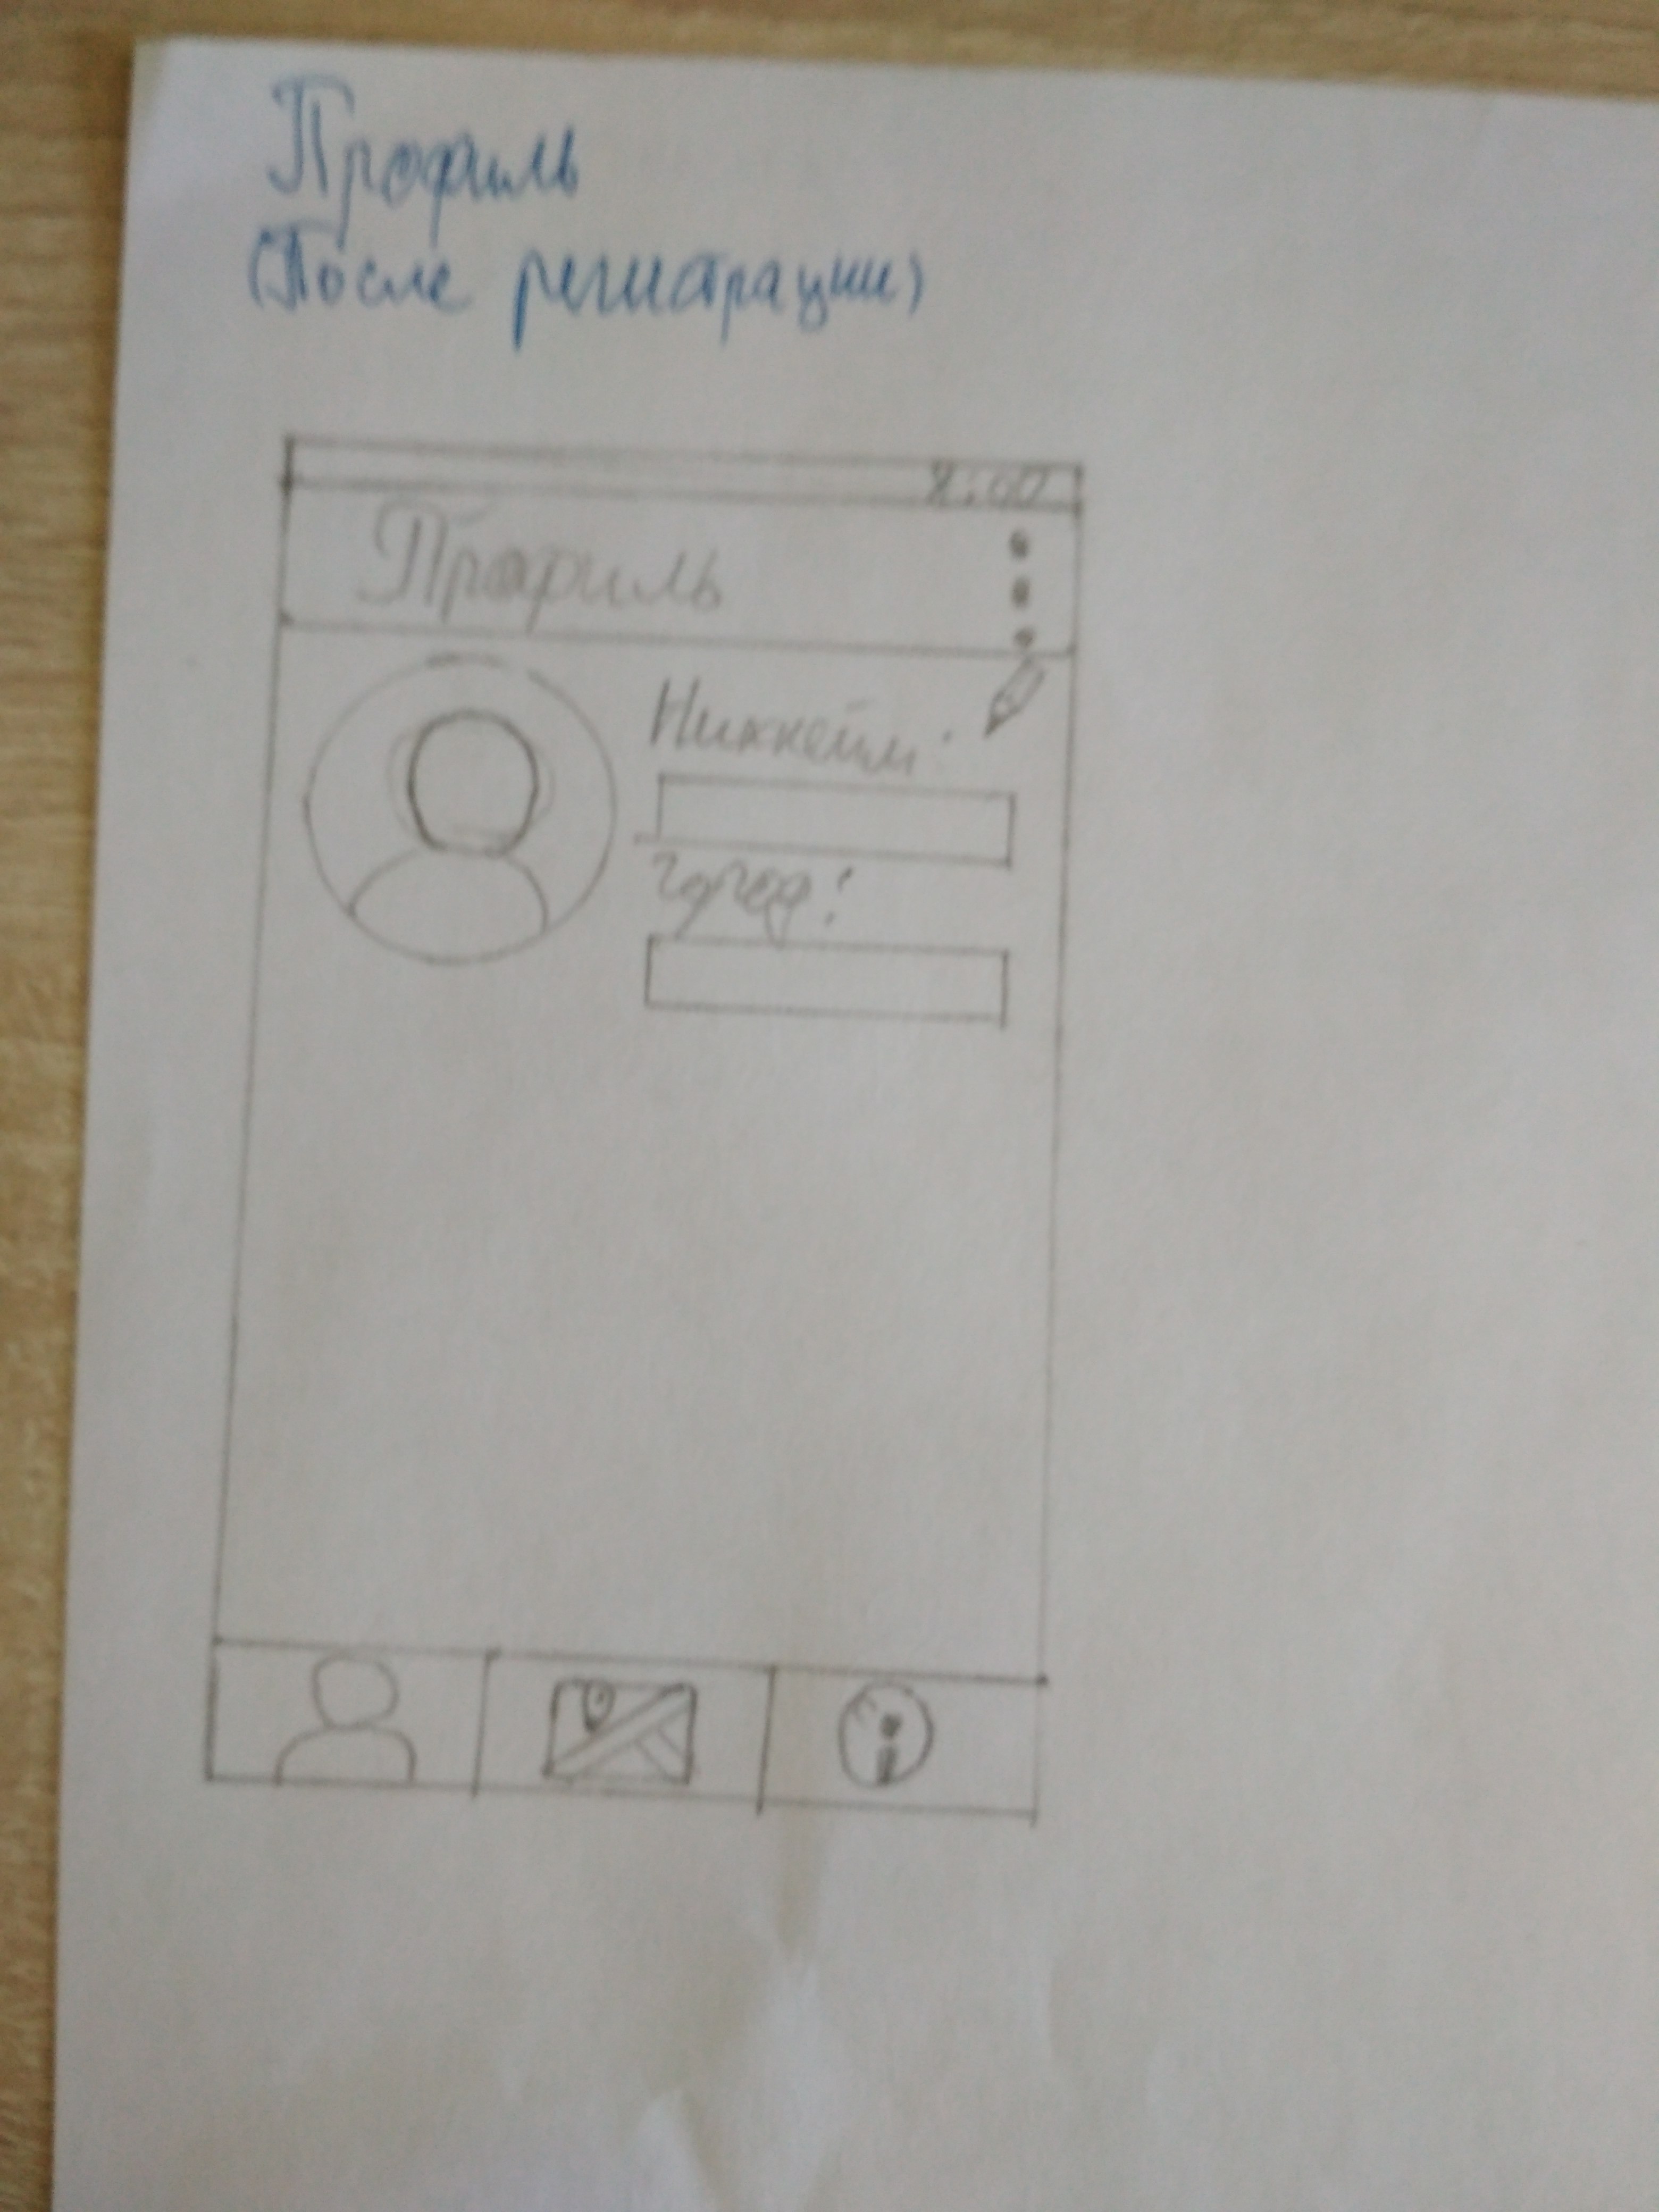 Профиль
(После регистрации)
8:00
Профиль
Никнейм:
город:
i